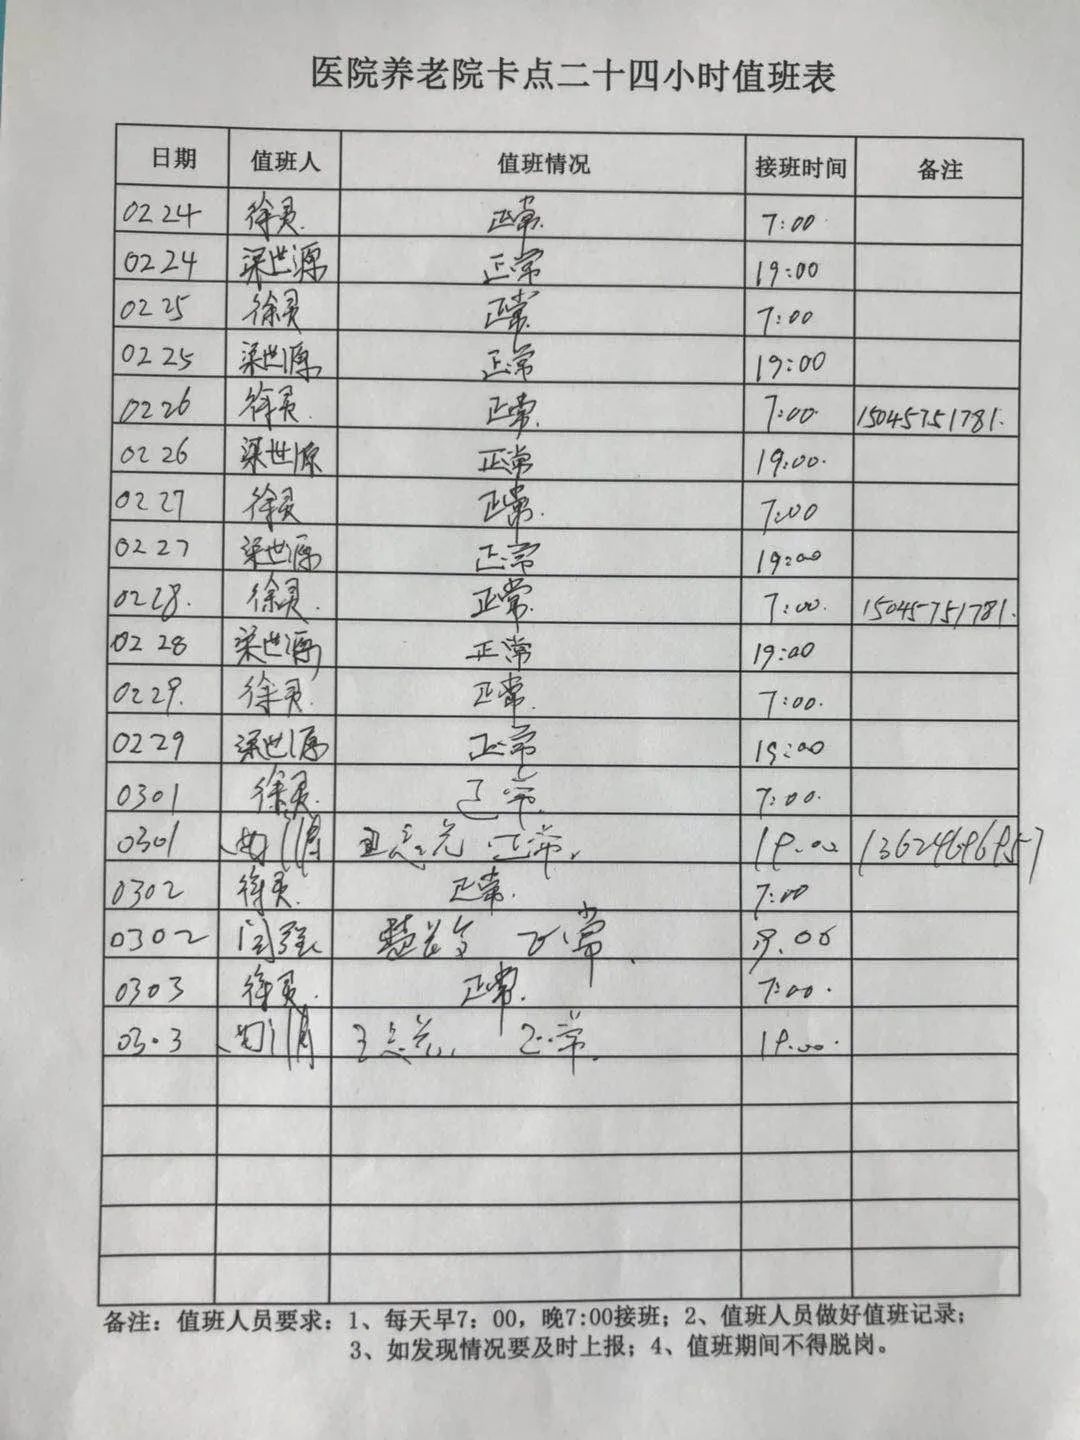 医院养老院卡点二十四小时值班表
日期 值班人 值班情况 接班时间 备注
0224 徐灵. 正常. 7:00
0224 梁世源 正常 19:00
0225 徐灵 正常. 7:00
0225 梁世源 正常 19:00
0226 徐灵. 正常. 7:00. 15045751781.
0226 梁世源 正常 19:00.
0227 徐灵 正常. 7:00
0227 梁世源 正常 19:00
0228. 徐灵. 正常. 7:00. 15045751781.
0228 梁世源 正常 19:00
0229. 徐灵. 正常. 7:00.
0229 梁世源 正常 19:00
0301 徐灵. 正常. 7:00.
0301 正常. 19.00
0302 徐灵. 正常. 7:00
0302 闫强 正常. 19.00
0303 徐灵. 正常. 7:00.
03.3 正常. 19.00.
备注：值班人员要求：1、每天早7：00，晚7:00接班；2、值班人员做好值班记录；
3、如发现情况要及时上报；4、值班期间不得脱岗。